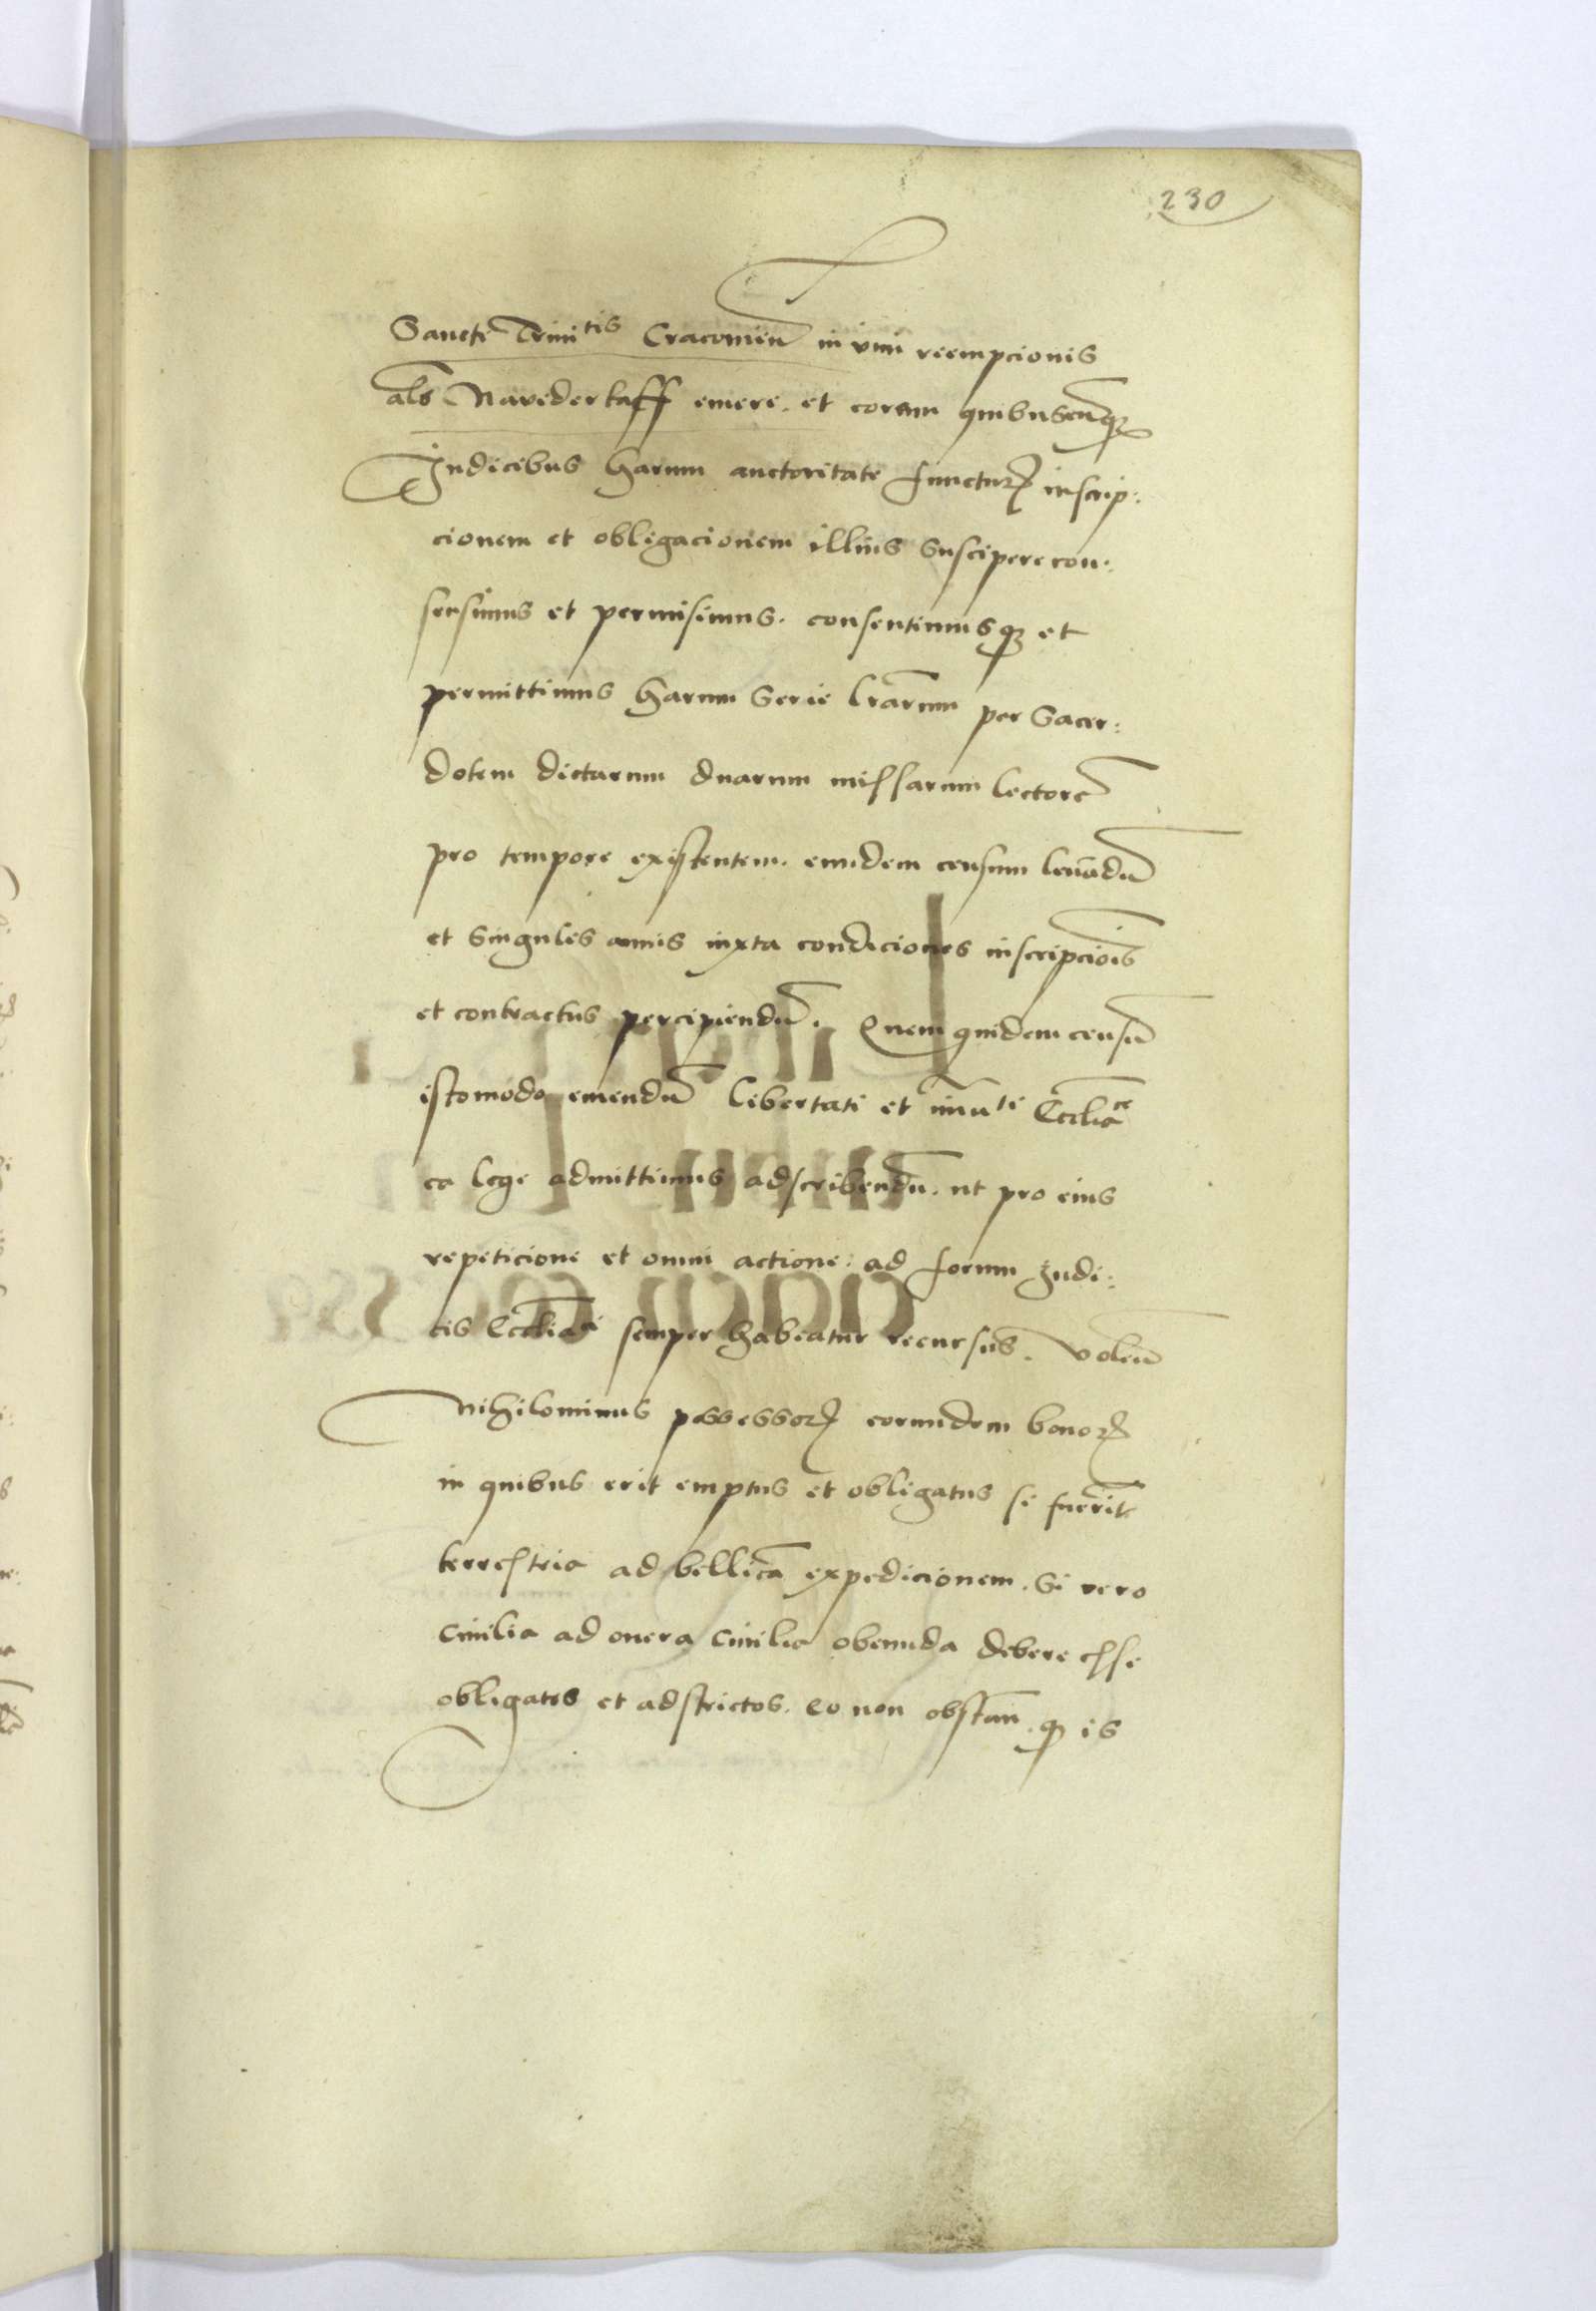 230
Sancti Trinitis Cracovien̄ in vim reempcionis
als Navederkaff emere. et coram quibuscunqȝ
Judicibus harum auctoritate functurꝝ inscrip:
cionem et obligacionem illius suscipere con:
sensimus et permisimus. consentimusqȝ et
permittimus harum serie lrārum per sacer:
dotem dictarum duarum missarum lectorē
pro tempore existentem. eundem censum levādū
et singulis annis iuxta condiciones inscripciōis
et contractus percipiendū. Quem quidem censū
istomodo emendū libertati et im̄uti Eccliāce
ea lege admittimus adscribendū. ut pro eius
repeticione et omni actione: ad forum Judi:
cis Eccliāci semper habeatur recursus. Volen̄
Nihilominus possessorꝝ eorundem bonorꝝ
in quibus erit emptus et obligatus si fuerīt
terrestria ad bellicā expedicionem. Si vero
Civilia ad onera Civilia obeunda debere esse
obligatos et adstrictos. eo non obstan̄. qȝ is